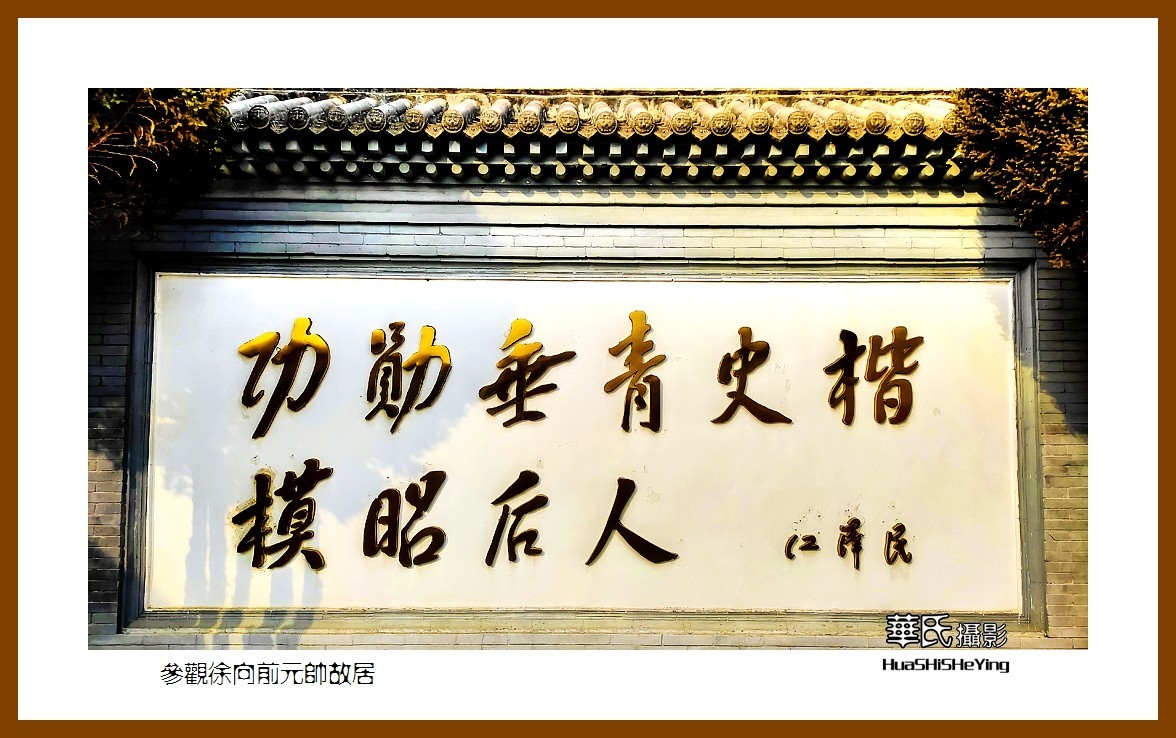 功勋垂青史楷
模昭后人
江泽民
華氏攝影
HuaSHiSHeYing
參觀徐向前元帥故居